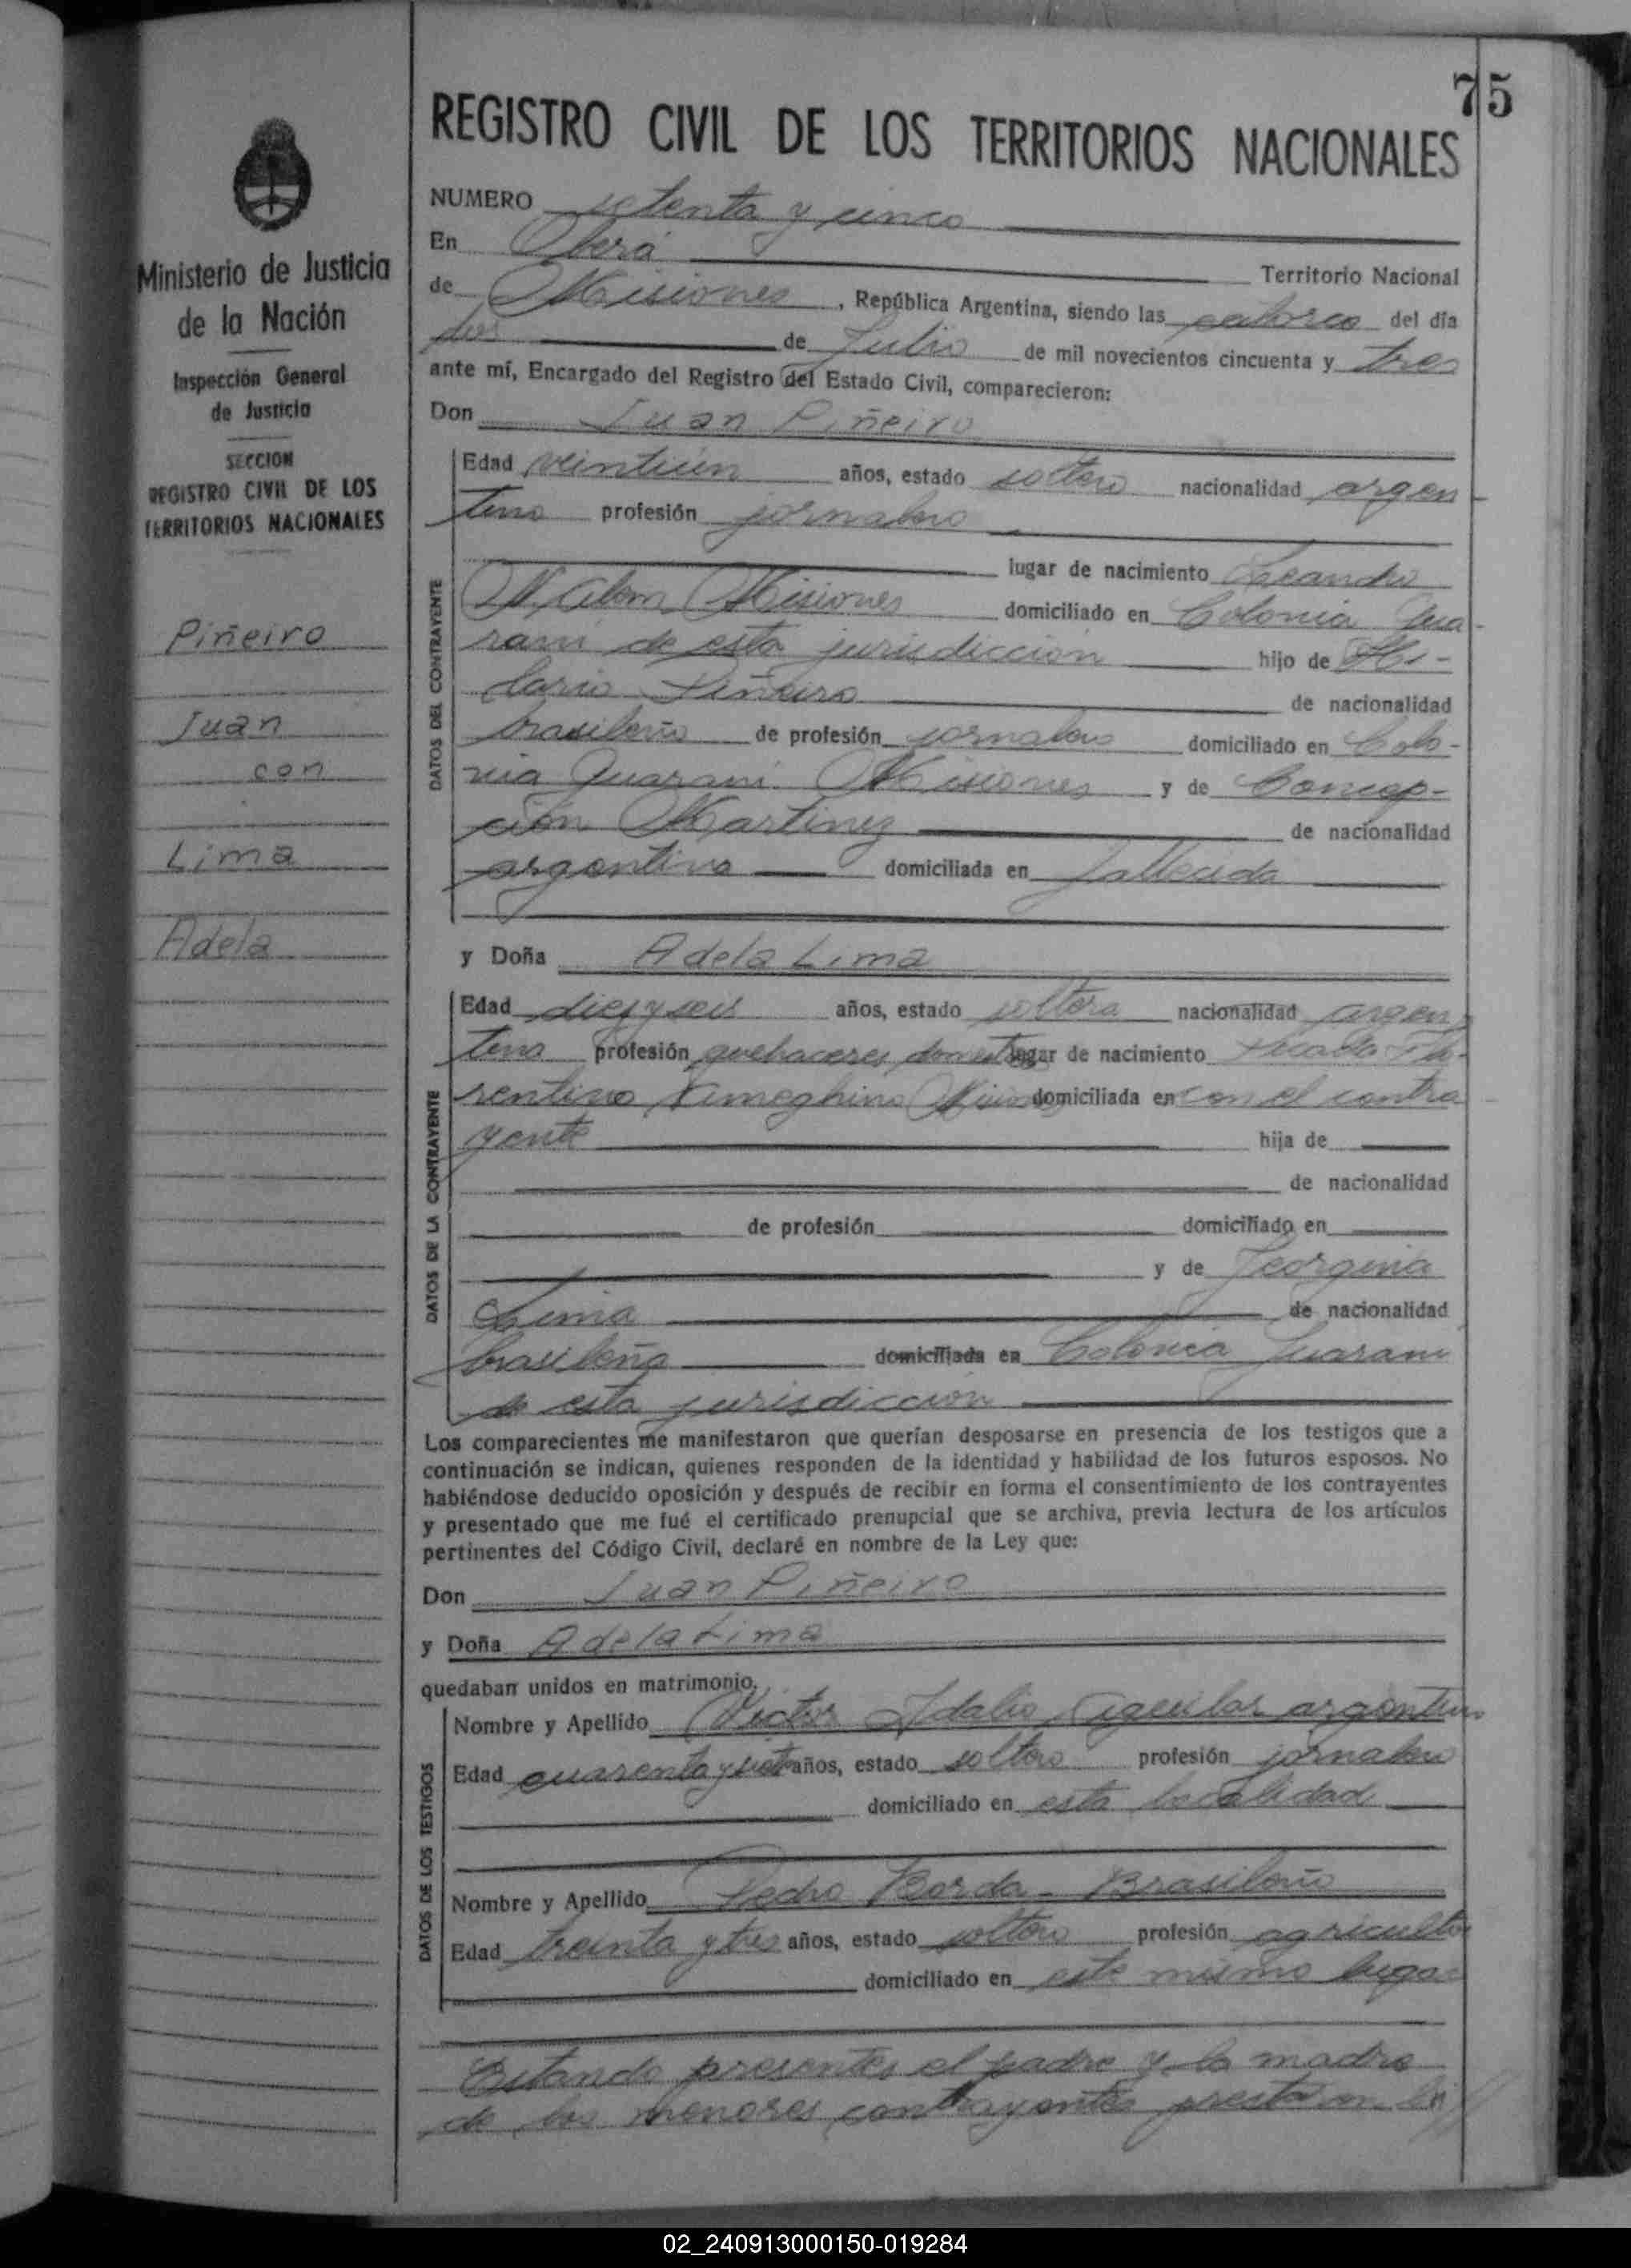 75
REGISTRO CIVIL DE LOS TERRITORIOS NACIONALES
Ministerio de Justicia
de la Nación
Inspección General
de Justicia
SECCION
REGISTRO CIVIL DE LOS
TERRITORIOS NACIONALES
Piñeiro
Juan
con
Lima
Adela
NUMERO setenta y cinco
En Oberá Territorio Nacional
de Misiones, República Argentina, siendo las catorce del día
dos de Julio de mil novecientos cincuenta y tres
ante mí, Encargado del Registro del Estado Civil, comparecieron:
Don Juan Piñeiro
DATOS DEL CONTRAYENTE
Edad veintiun años, estado soltero nacionalidad argen
tino profesión jornalero
lugar de nacimiento Leandro
N. Alem Misiones domiciliado en Colonia Gua-
raní de esta jurisdiccion hijo de Hi-
lario Piñeiro de nacionalidad
brasileño de profesión jornalero domiciliado en Colo-
nia Guarani Misiones y de Concep-
ción Martinez de nacionalidad
argentina domiciliada en fallecida
y Doña Adela Lima
DATOS DE LA CONTRAYENTE
Edad diez y seis años, estado soltera nacionalidad argen
tina profesión quehaceres domesticos lugar de nacimiento Picada Flo-
rentino Ameghino Misiones domiciliada en con el contra
yente hija de
de nacionalidad
de profesión domiciliado en
y de Georgina
Lima de nacionalidad
brasileña domiciliada en Colonia Guarani
de esta jurisdiccion
Los comparecientes me manifestaron que querían desposarse en presencia de los testigos que a
continuación se indican, quienes responden de la identidad y habilidad de los futuros esposos. No
habiéndose deducido oposición y después de recibir en forma el consentimiento de los contrayentes
y presentado que me fué el certificado prenupcial que se archiva, previa lectura de los artículos
pertinentes del Código Civil, declaré en nombre de la Ley que:
Don Juan Piñeiro
y Doña Adela Lima
quedaban unidos en matrimonio.
DATOS DE LOS TESTIGOS
Nombre y Apellido Victor Idalio Aguilar argentino
Edad cuarenta y siete años, estado soltero profesión jornalero
domiciliado en esta localidad
Nombre y Apellido Pedro Borda - Brasileño
Edad treinta y tres años, estado soltero profesión agricultor
domiciliado en este mismo lugar
Estando presentes el padre y la madre
de los menores contrayentes prestaron
02_240913000150-019284